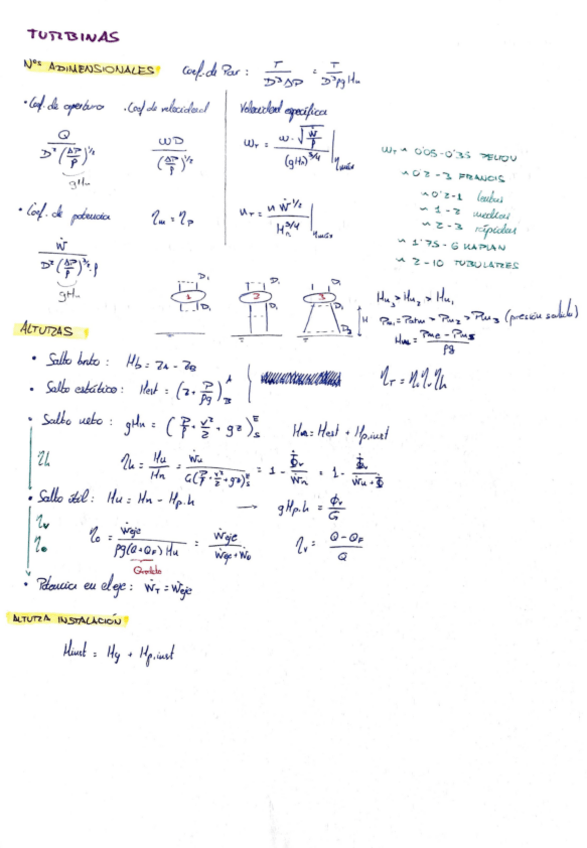 TURBINAS
Nos ADIMENSIONALES
Coef. de Par: T / (D³ ΔP) = T / (D³ ρ g Hn)
· Coef. de apertura
· Coef de velocidad
Velocidad específica
Q / (D² (ΔP/ρ)^1/2)
gHn
ωD / (ΔP/ρ)^1/2
ωT = ω · √(Ẇ/ρ) / (gHn)^5/4 | ηmáx
ωT ~ 0'05-0'35 PELTON
~ 0'2 - 3 FRANCIS
~ 0'2-1 lentas
~ 1 - 2 medias
~ 2 - 3 rápidas
~ 1'75 - 6 KAPLAN
~ 2 - 10 TUBULARES
· Coef. de potencia
ηm = ηp
nT = n Ẇ^1/2 / Hn^5/4 | ηmáx
Ẇ / (D² (ΔP/ρ)^3/2 · ρ)
gHn
D1 D1 D1
1 2 3
D1 D1 D2 H
Hn3 > Hn2 > Hn1
PM1 = Patm > PM2 > PM3 (presión salida)
Hn = (PME - PMS) / ρg
ALTURAS
· Salto bruto: Hb = zA - zB
· Salto estático: Hest = (z + P/ρg) A B
ηT = ηo ηv ηh
· Salto neto: gHn = (P/ρ + v²/2 + gz) E S
Hn = Hest + Hp,inst
ηh
ηh = Hu / Hn = Ẇu / G(P/ρ + v²/2 + gz) E S = 1 - Φ̇v / Ẇn = 1 - Φ̇v / (Ẇu + Φ̇)
· Salto útil: Hu = Hn - Hp,h → gHp,h = Φv / G
ηv
ηo
ηo = Ẇeje / (ρg(Q + QF) Hu) = Ẇeje / (Ẇeje + Ẇo)
ηv = (Q - QF) / Q
· Potencia en el eje: ẆT = Ẇeje
ALTURA INSTALACIÓN
Hinst = Hg + Hp,inst